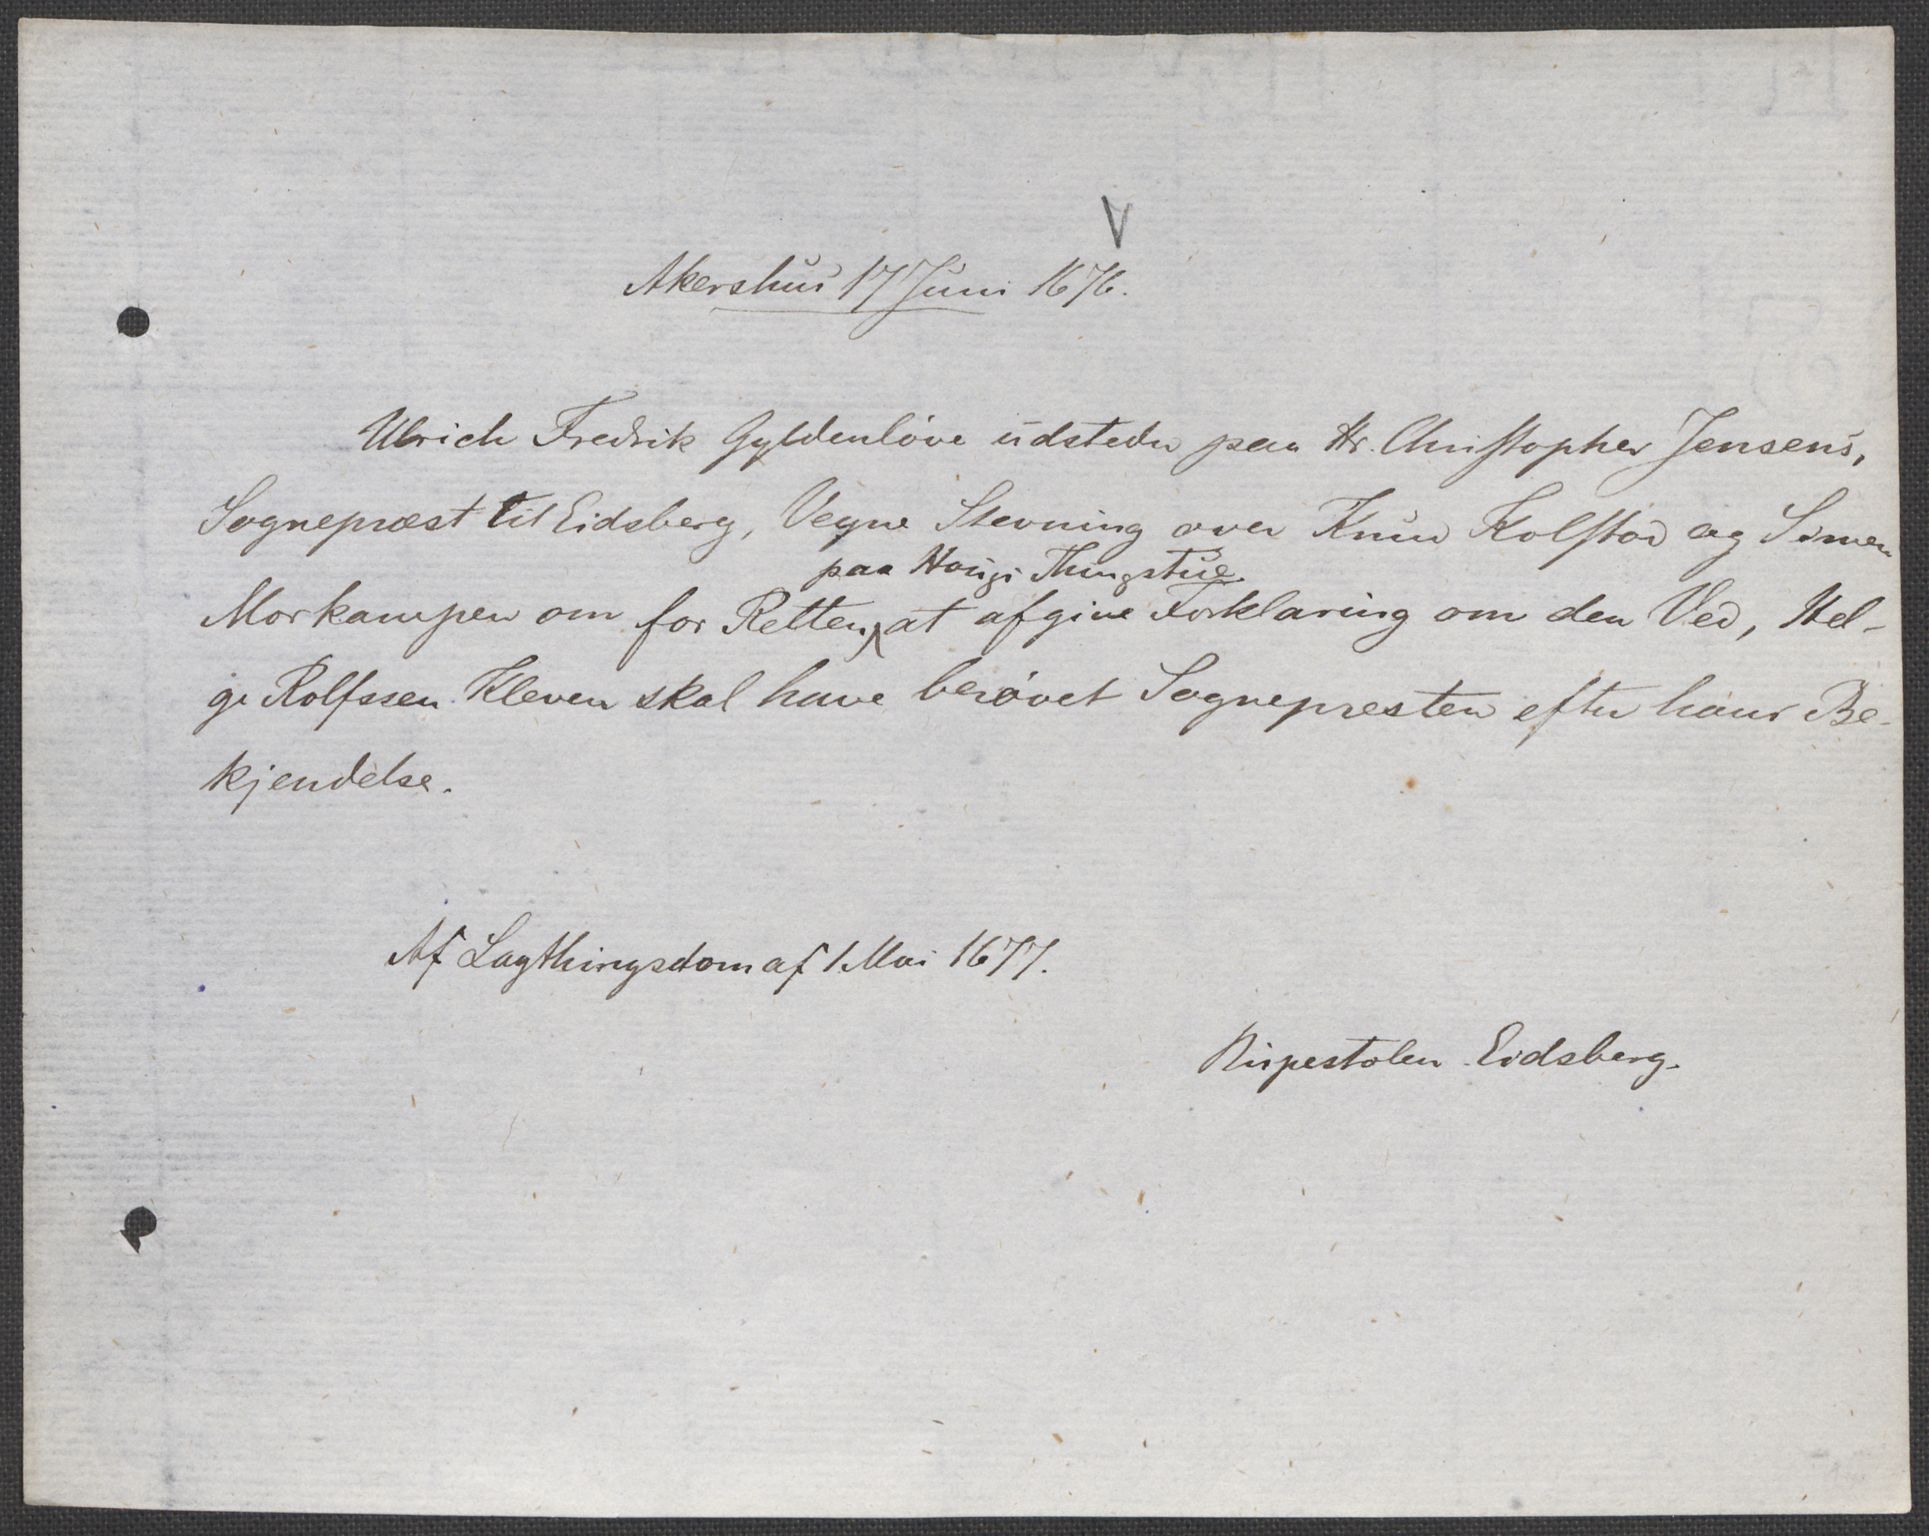 V
Akershus 17 Juni 1676.
Ulrich Fredrik Gyldenlöve udsteder paa Hr. Christopher Jensens,
Sognepræst til Eidsberg, Vegne Stevning over Knud Kolstad og Simen
paa Haugs Thingstue
Morkampen om for Retten at afgive Forklaring om den Ved, Hel-
ge Rolfssen Kleven skal have berøvet Sognepresten efter hans Be-
kjendelse.
Af Lagthingsdom af 1 Mai 1677.
Ruspestolen Eidsberg.